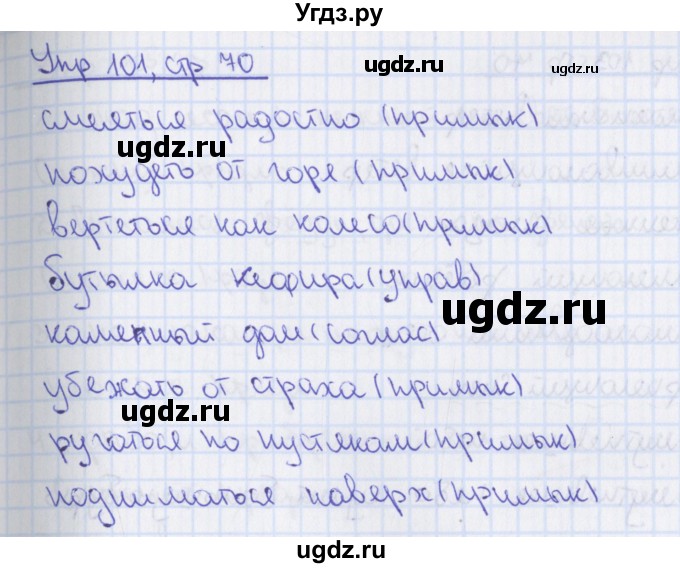 Угдз.ру
Упр 101, стр 70
ugdz.ru
ugdz.ru
смеяться радостно (примык)
ugdz.ru
похудеть от горя (примык)
вертеться как колесо (примык)
бутылка кефира (управ)
ugdz.ru
каменный дом (соглас)
ugdz.ru
убежать от страха (примык)
ugdz.ru
ugdz.ru
ругаться по пустякам (примык)
подниматься наверх (примык)
ugdz.ru
ugdz.ru